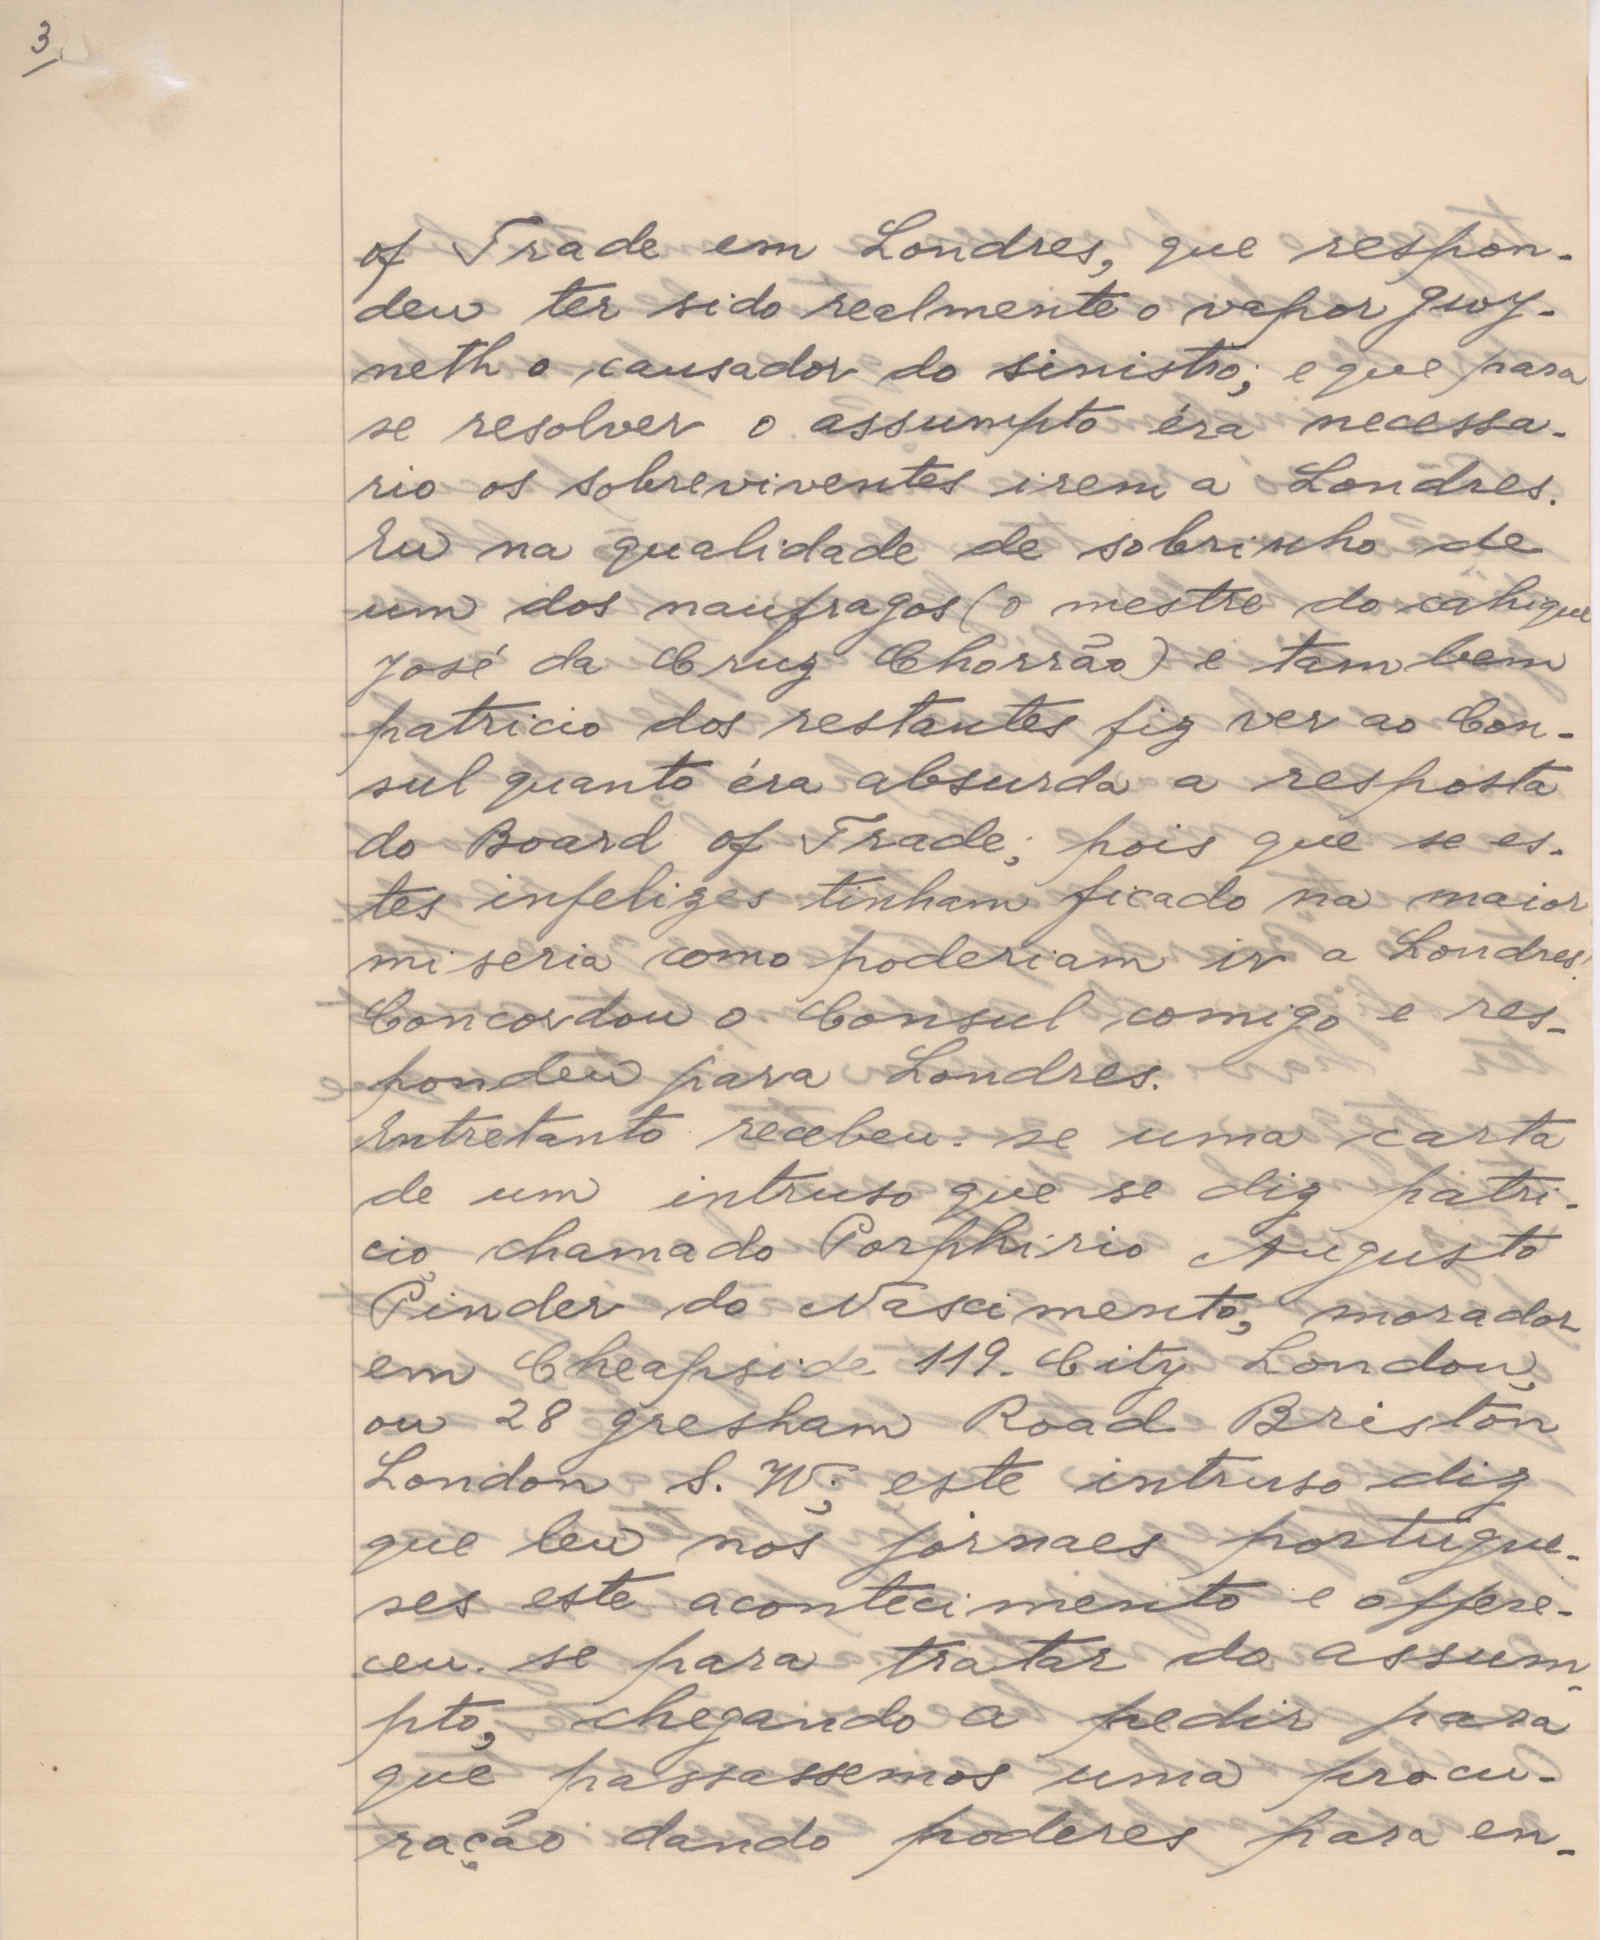 3
of Trade em Londres, que respon-
deu ter sido realmente o vapor Gwy-
neth o causador do sinistro; e que para
se resolver o assumpto éra necessa-
rio os sobreviventes irem a Londres.
Eu na qualidade de sobrinho de
um dos naufragos (o mestre do cahique
José da Cruz Chorrão) e tambem
patricio dos restantes fiz ver ao Con-
sul quanto éra absurda a resposta
do Board of Trade; pois que se es-
tes infelizes tinham ficado na maior
miseria como poderiam ir a Londres!
Concordou o Consul comigo e res-
pondeu para Londres.
Entretanto recebeu-se uma carta
de um intruso que se diz patri-
cio chamado Porphirio Augusto
Pinder do Nascimento, morador
em Cheapside 119. City London,
ou 28 Gresham Road Bristön
London S. W; este intruso diz
que leu nos jornaes portugue-
ses este acontecimento e offere-
ceu-se para tratar do assum-
pto, chegando a pedir para
que passassemos uma procu-
ração dando poderes para en-